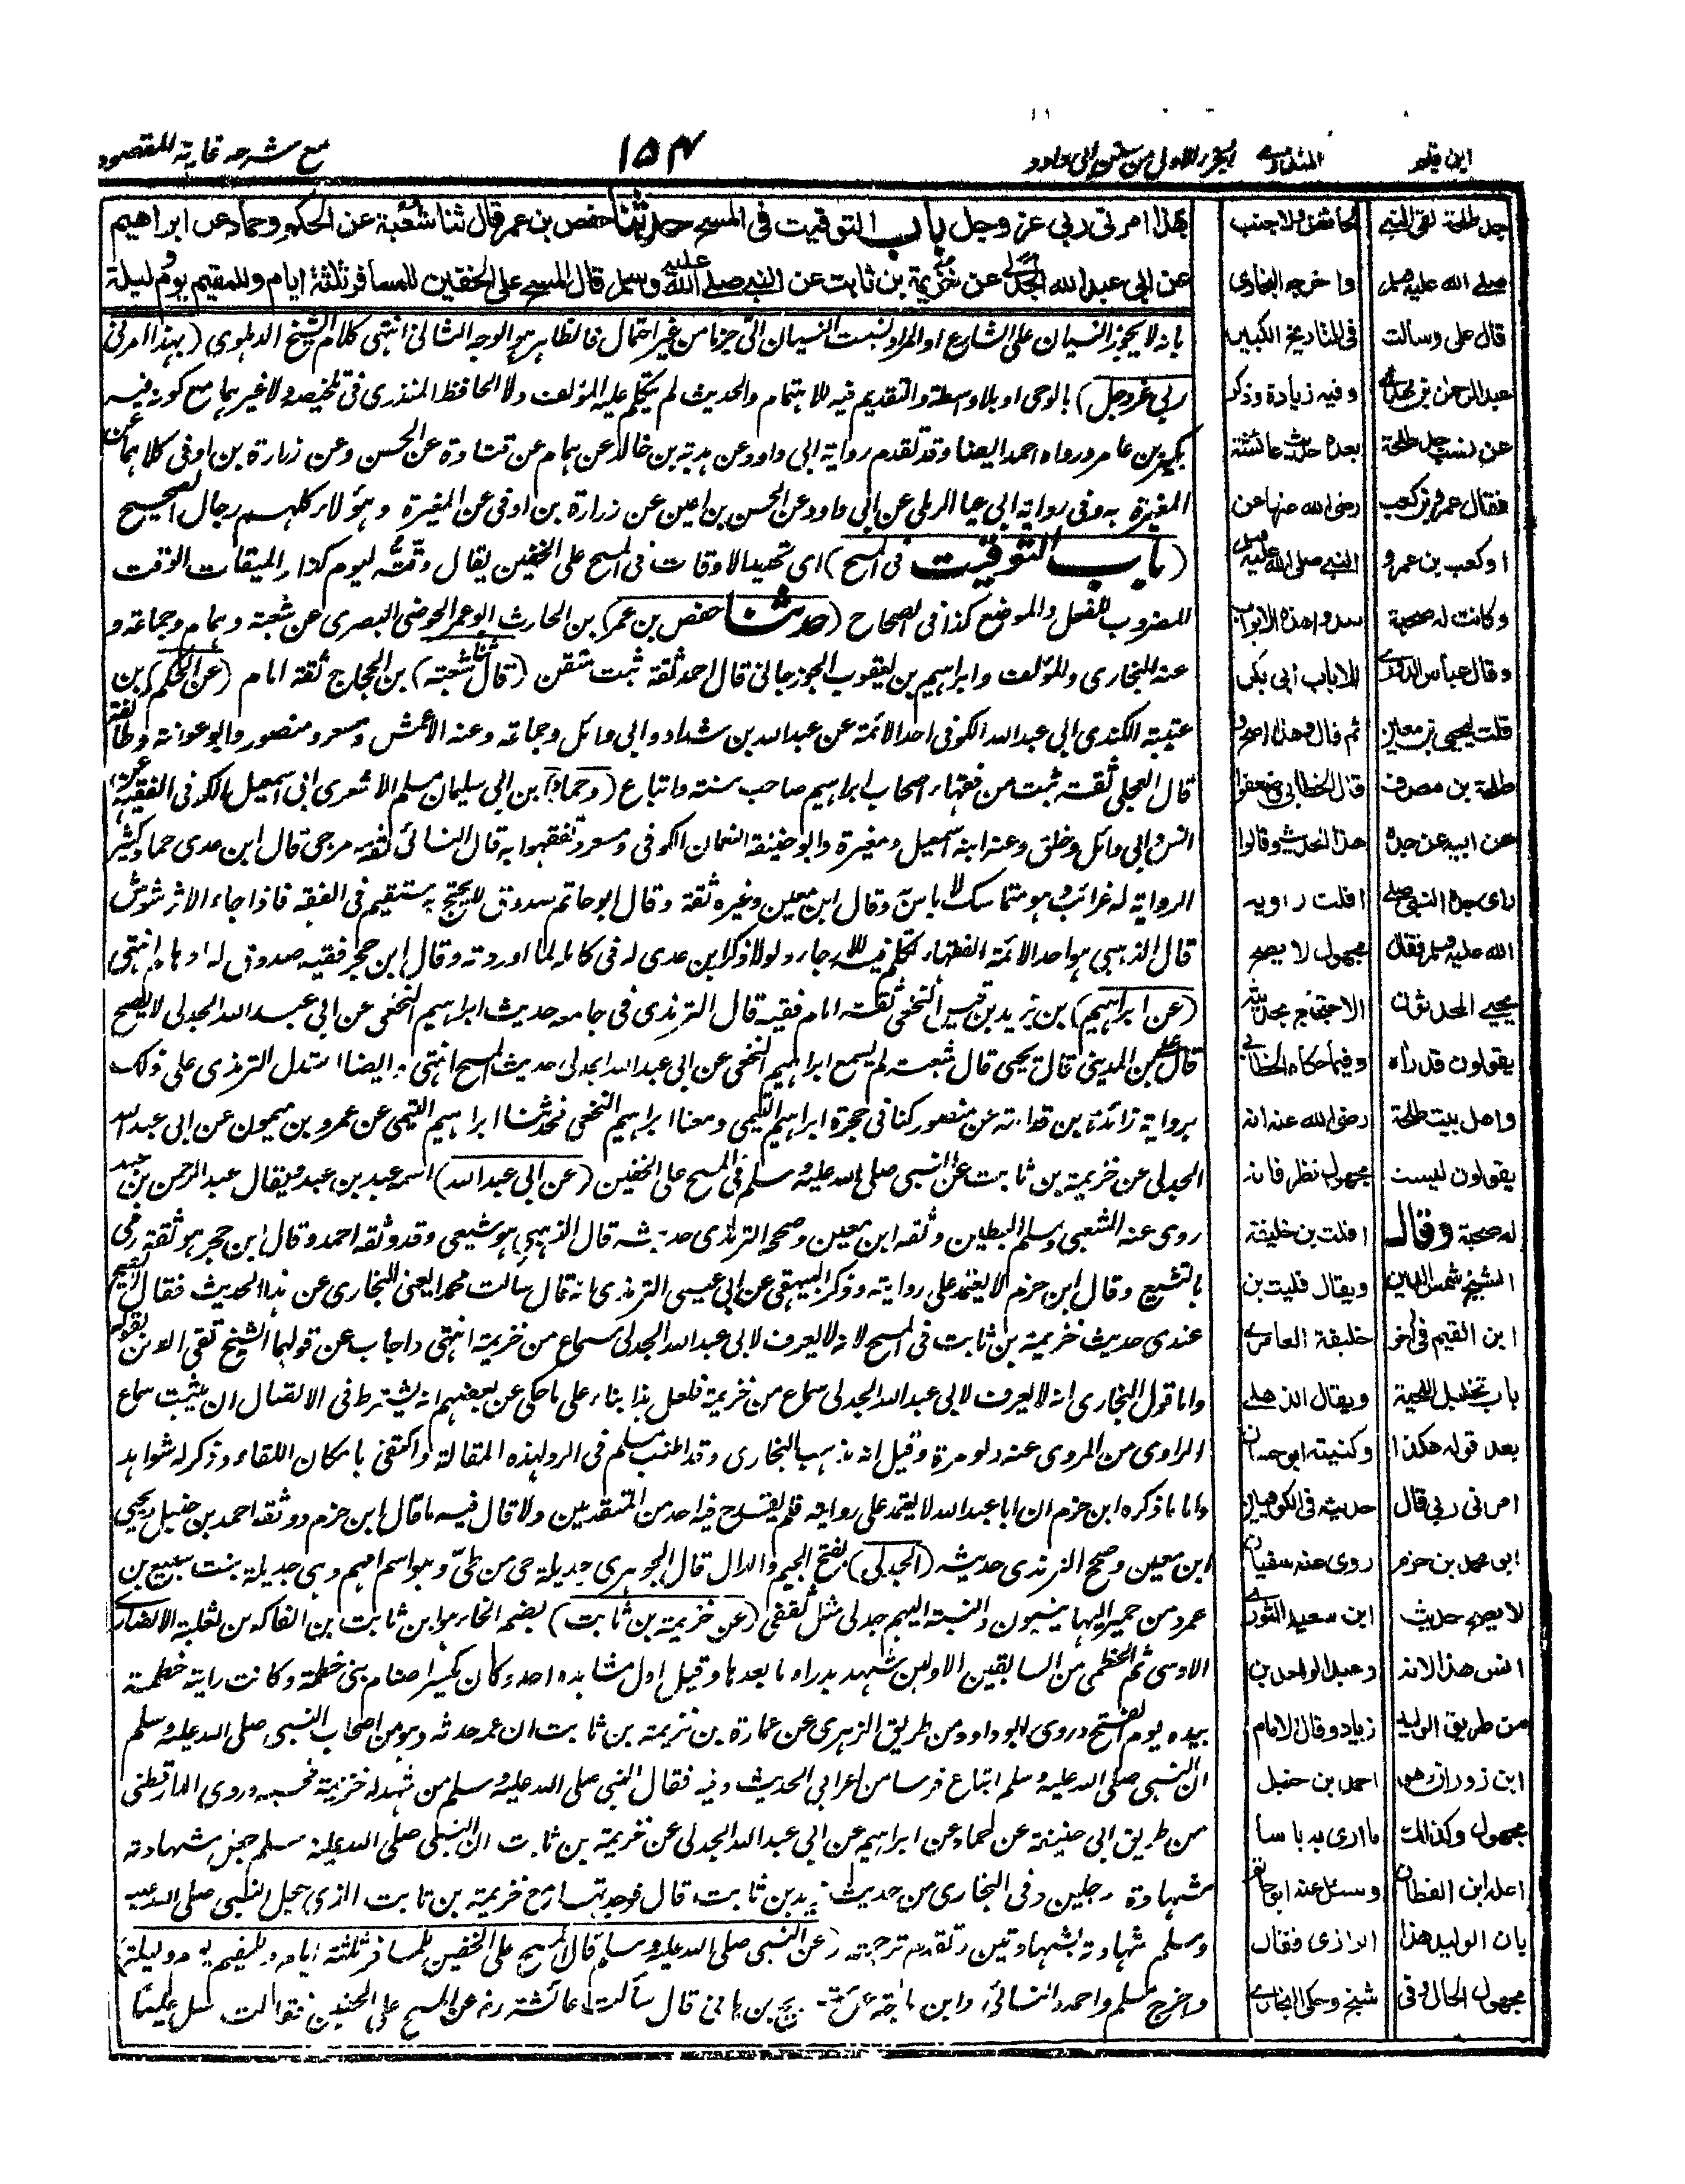 ابن قيم
المنذرى
الجزء الاول من سنن ابى داود
١٥٣
مع شرحه غاية المقصود
بهذا امرنى ربى عز وجل باب التوقيت فى المسح حدثنا حفص بن عمر قال ثنا شعبة عن الحكم وحماد عن ابراهيم
عن ابى عبد الله الجدلى عن خزيمة بن ثابت عن النبى صلى الله عليه وسلم قال المسح على الخفين للمسافر ثلثة ايام وللمقيم يوم وليلة
بانه لا يجوز النسيان على الشارع او المراد نسبت النسيان الى جزما من غير احتمال فالظاهر هو الوجه الثانى انتهى كلام الشيخ الدهلوى (بهذا امرنى
ربى عز وجل) بالوحى او بلا واسطة والتقديم فيه للاهتمام والحديث لم يتكلم عليه المؤلف ولا الحافظ المنذرى فى تلخيصه ولا غيرهما مع كونه فيه
بكير بن عامر ورواه احمد ايضا وقد تقدم رواية ابى داود عن هدبة بن خالد عن همام عن قتادة عن الحسن وعن زرارة بن اوفى كلاهما عن
المغيرة به وفى رواية ابى عيسا الرملى عن ابى داود عن الحسن بن اعين عن زرارة بن اوفى عن المغيرة وهؤلاء كلهم رجال الصحيح
(باب التوقيت فى المسح) اى تحديد الاوقات فى المسح على الخفين يقال وقته ليوم كذا والميقات الوقت
المضروب للفعل والموضع كذا فى الصحاح (حدثنا حفص بن عمر) بن الحارث ابو عمر الحوضى البصرى عن شعبة وهمام وجماعة و
عنه البخارى والمؤلف وابراهيم بن يعقوب الجوزجانى قال احمد ثقة ثبت متقن (قال ثنا شعبة) بن الحجاج ثقة امام (عن الحكم) بن
عتيبة الكندى ابى عبد الله الكوفى احد الائمة عن عبد الله بن شداد وابى وائل وجماعة وعنه الاعمش ومسعر ومنصور وابو عوانة وطائفة
قال العجلى ثقة ثبت من فقهاء اصحاب ابراهيم صاحب سنة واتباع (وحماد) بن ابى سليمان مسلم الاشعرى ابى اسمعيل الكوفى الفقيه عن
انس وابى وائل وخلق وعنه ابنه اسمعيل ومغيرة وابو حنيفة النعمان الكوفى ومسعر وتفقهوا به قال النسائى ثقة مرجى قال ابن عدى حماد كثير
الرواية له غرائب وهو متماسك لا باس به وقال ابن معين وغيره ثقة وقال ابو حاتم صدوق لا يحتج به مستقيم فى الفقه فاذا جاء الاثر شوش
قال الذهبى هو احد الائمة الفقهاء تكلم فيه للارجاء ولولا ذكر ابن عدى له فى كامله لما اوردته وقال ابن حجر فقيه صدوق له اوهام انتهى
(عن ابراهيم) بن يزيد بن قيس النخعى ثقة امام فقيه قال الترمذى فى جامعه حديث ابراهيم النخعى عن ابى عبد الله الجدلى لا يصح
قال على بن المدينى قال يحيى قال شعبة لم يسمع ابراهيم النخعى عن ابى عبد الله الجدلى حديث المسح انتهى وايضا استدل الترمذى على ذلك
برواية زائدة بن قدامة عن منصور كنا فى حجرة ابراهيم التيمى ومعنا ابراهيم النخعى فحدثنا ابراهيم التيمى عن عمرو بن ميمون عن ابى عبد الله
الجدلى عن خزيمة بن ثابت عن النبى صلى الله عليه وسلم فى المسح على الخفين (عن ابى عبد الله) اسمه عبد بن عبد ويقال عبد الرحمن بن عبد
روى عنه الشعبى ومسلم البطين وثقه ابن معين وصحح الترمذى حديثه قال الذهبى هو شيعى وقد وثقه احمد وقال ابن حجر هو ثقة رمى
بالتشيع وقال ابن حزم لا يعتمد على روايته وذكر البيهقى عن ابى عيسى الترمذى انه قال سالت محمدا يعنى البخارى عن هذا الحديث فقال لا يصح
عندى حديث خزيمة بن ثابت فى المسح لانه لا يعرف لابى عبد الله الجدلى سماع من خزيمة انتهى واجاب عن قولهما الشيخ تقى الدين بقوله
واما قول البخارى انه لا يعرف لابى عبد الله الجدلى سماع من خزيمة فلعل هذا بناء على ما حكى عن بعضهم انه يشترط فى الاتصال ان يثبت سماع
الراوى من المروى عنه ولو مرة وقيل انه مذهب البخارى وقد اطنب مسلم فى الرد لهذه المقالة واكتفى بامكان اللقاء وذكر له شواهد
واما ما ذكره ابن حزم ان ابا عبد الله لا يعتمد على روايته فلم يقدح فيه احد من المتقدمين ولا قال فيه ما قال ابن حزم ووثقه احمد بن حنبل ويحيى
ابن معين وصحح الترمذى حديثه (الجدلى) بفتح الجيم والدال قال الجوهرى جديلة حى من طى وهو اسم امهم وهى جديلة بنت سبيع بن
عمرو من حمير اليها ينسبون والنسبة اليهم جدلى مثل ثقفى (عن خزيمة بن ثابت) بضم الخاء هو ابن ثابت بن الفاكه بن ثعلبة الانصارى
الاوسى ثم الخطمى من السابقين الاولين شهد بدرا وما بعدها وقيل اول مشاهده احد وكان يكسر اصنام بنى خطمة وكانت راية خطمة
بيده يوم الفتح وروى ابو داود من طريق الزهرى عن عمارة بن خزيمة بن ثابت ان عمه حدثه وهو من اصحاب النبى صلى الله عليه وسلم
ان النبى صلى الله عليه وسلم ابتاع فرسا من اعرابى الحديث وفيه فقال النبى صلى الله عليه وسلم من شهد له خزيمة فحسبه وروى الدارقطنى
من طريق ابى حنيفة عن حماد عن ابراهيم عن ابى عبد الله الجدلى عن خزيمة بن ثابت ان النبى صلى الله عليه وسلم جعل شهادته
شهادة رجلين وفى البخارى من حديث زيد بن ثابت قال فوجدتها مع خزيمة بن ثابت الذى جعل النبى صلى الله عليه
وسلم شهادته بشهادتين وتقدم ترجمته (عن النبى صلى الله عليه وسلم قال المسح على الخفين للمسافر ثلثة ايام وللمقيم يوم وليلة)
واخرج مسلم واحمد والنسائى وابن ماجة عن شريح بن هانئ قال سألت عائشة رض عن المسح على الخفين فقالت سل عليا
جد طلحة لقى النبى
صلى الله عليه وسلم
قال على وسالت
عبد الرحمن بن مهدى
عن نسب جد طلحة
فقال عمرو بن كعب
او كعب بن عمرو
وكانت له صحبة
وقال عباس الدورى
قلت ليحيى بن معين
طلحة بن مصرف
عن ابيه عن جده
راى جده النبى صلى
الله عليه وسلم فقال
يحيى المحدثون
يقولون قد راه
واهل بيت طلحة
يقولون ليست
له صحبة وقال
الشيخ شمس الدين
ابن القيم فى اخر
باب تخليل اللحية
بعد قوله هكذا
امرنى ربى قال
ابو محمد بن حزم
لا يصح حديث
انس هذا لانه
من طريق الوليد
ابن زوران وهو
مجهول وكذلك
اعله ابن القطان
بان الوليد هذا
مجهول الحال وفى
لحائض ولا جنب
واخرجه البخارى
فى التاريخ الكبير
وفيه زيادة وذكر
بعده حديث عائشة
رضى الله عنها عن
النبى صلى الله عليه وسلم
سدوا هذه الابواب
الا باب ابى بكر
ثم قال وهذا اصح
قال الخطابى وضعفوا
هذا الحديث وقالوا
افلت راويه
مجهول لا يصح
الاحتجاج بحديثه
وفيما حكاه الخطابى
رضى الله عنه انه
مجهول نظر فانه
افلت بن خليفة
ويقال فليت بن
خليفة العامرى
ويقال الذهلى
وكنيته ابو حسان
حديثه فى الكوفيين
روى عنه سفيان
ابن سعيد الثورى
وعبد الواحد بن
زياد وقال الامام
احمد ابن حنبل
ما ارى به باسا
وسئل عنه ابو حاتم
الرازى فقال
شيخ وحكى البخارى